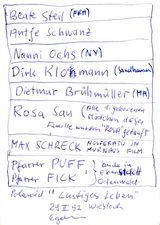 Beate Steil (FRA)
Antje Schwanz
Nanni Ochs (NY)
Dirk Kloßmann (Sandhausen)
Dietmar Brühmüller (MA)
Rosa Sau (Alle 1. geborenen
Mädchen dieser
Familie wurden "ROSA" getauft
MAX SCHRECK NOSFERATU IN
MURNAUS FILM
Pfarrer PUFF
Pfarrer FICK
beide in
Odenwald
"Lustiges Leben"
21 II 92 Wiesloch